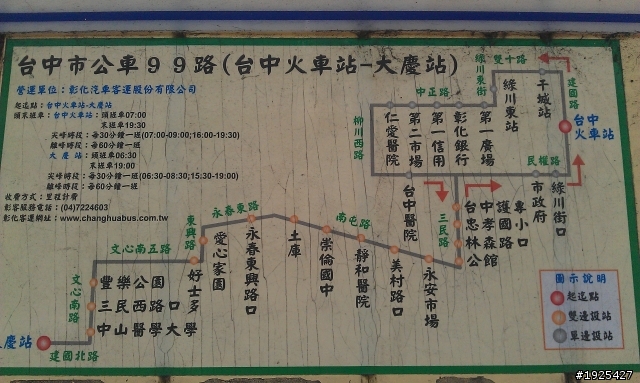 台中市公車99路(台中火車站-大慶站)
營運單位：彰化汽車客運股份有限公司
起迄點：台中火車站-大慶站
頭末班車：台中火車站：頭班車07:00
末班車19:30
尖峰時段：每30分鐘一班(07:00-09:00;16:00-19:30)
離峰時段：每60分鐘一班
大慶站：頭班車06:30
末班車19:00
尖峰時段：每30分鐘一班(06:30-08:30;15:30-19:00)
離峰時段：每60分鐘一班
收費方式：里程計費
彰客服務電話：(04)7224603
彰化客運網址：www.changhuabus.com.tw
雙十路
綠川東街
中正路
柳川西路
建國路
民權路
三民路
南屯路
永春東路
東興路
文心南五路
文心南路
建國北路
干城站
綠川東站
第一廣場
彰化銀行
第一信用
第二市場
仁愛醫院
台中火車站
綠川街口
市政府
專小口
護國路
中孝森館
台忠林公
台中醫院
永安市場
美村路口
靜和醫院
崇倫國中
土庫
永春東興路口
愛心家園
好士多
豐樂公園
三民西路口
中山醫學大學
慶站
圖示說明
起迄點
雙邊設站
單邊設站
#1925427